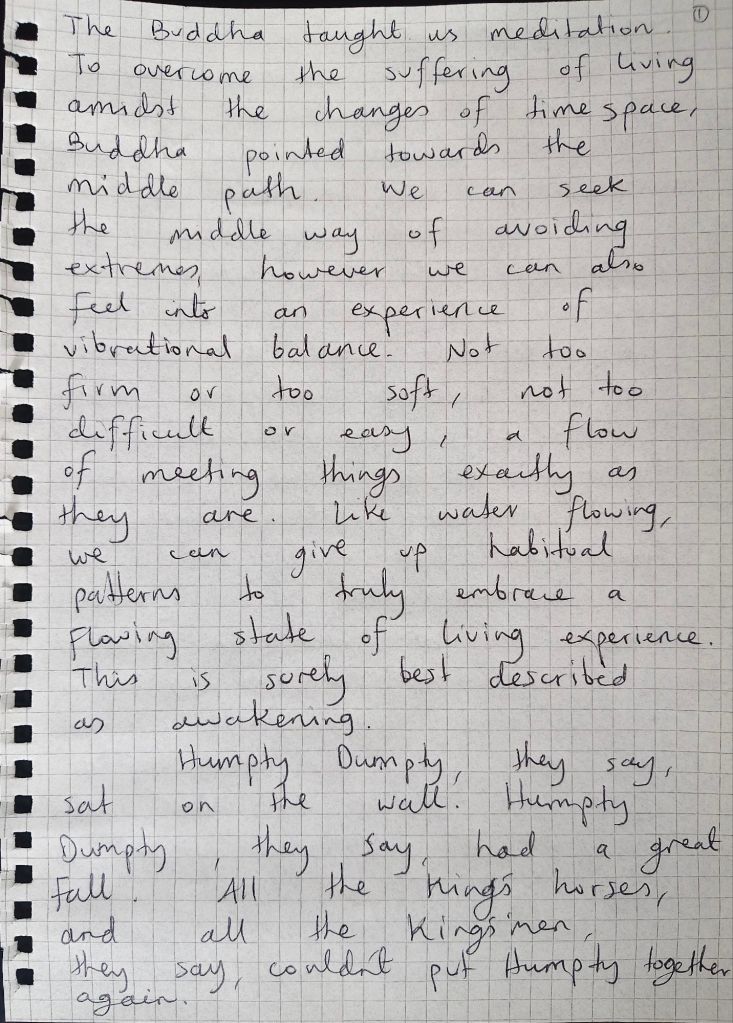 ①
The Buddha taught us meditation.
To overcome the suffering of living
amidst the changes of time space,
Buddha pointed towards the
middle path. We can seek
the middle way of avoiding
extremes, however we can also
feel into an experience of
vibrational balance. Not too
firm or too soft, not too
difficult or easy, a flow
of meeting things exactly as
they are. Like water flowing,
we can give up habitual
patterns to truly embrace a
flowing state of living experience.
This is surely best described
as awakening.
Humpty Dumpty, they say,
sat on the wall. Humpty
Dumpty, they say, had a great
fall. All the King's horses,
and all the Kings'men,
they say, couldn't put Humpty together
again.